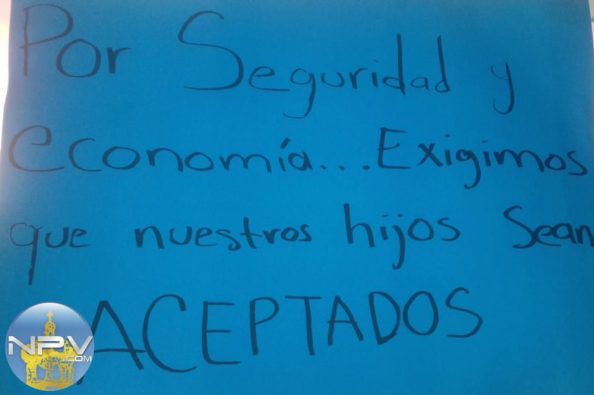 Por Seguridad y
economía...Exigimos
que nuestros hijos Sean
ACEPTADOS
NPV
.COM